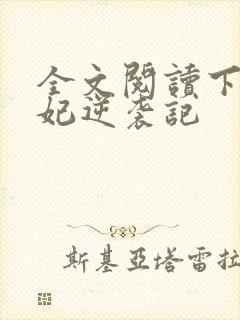 全文閱讀下
妃逆袭記
斯基亞塔雷拉